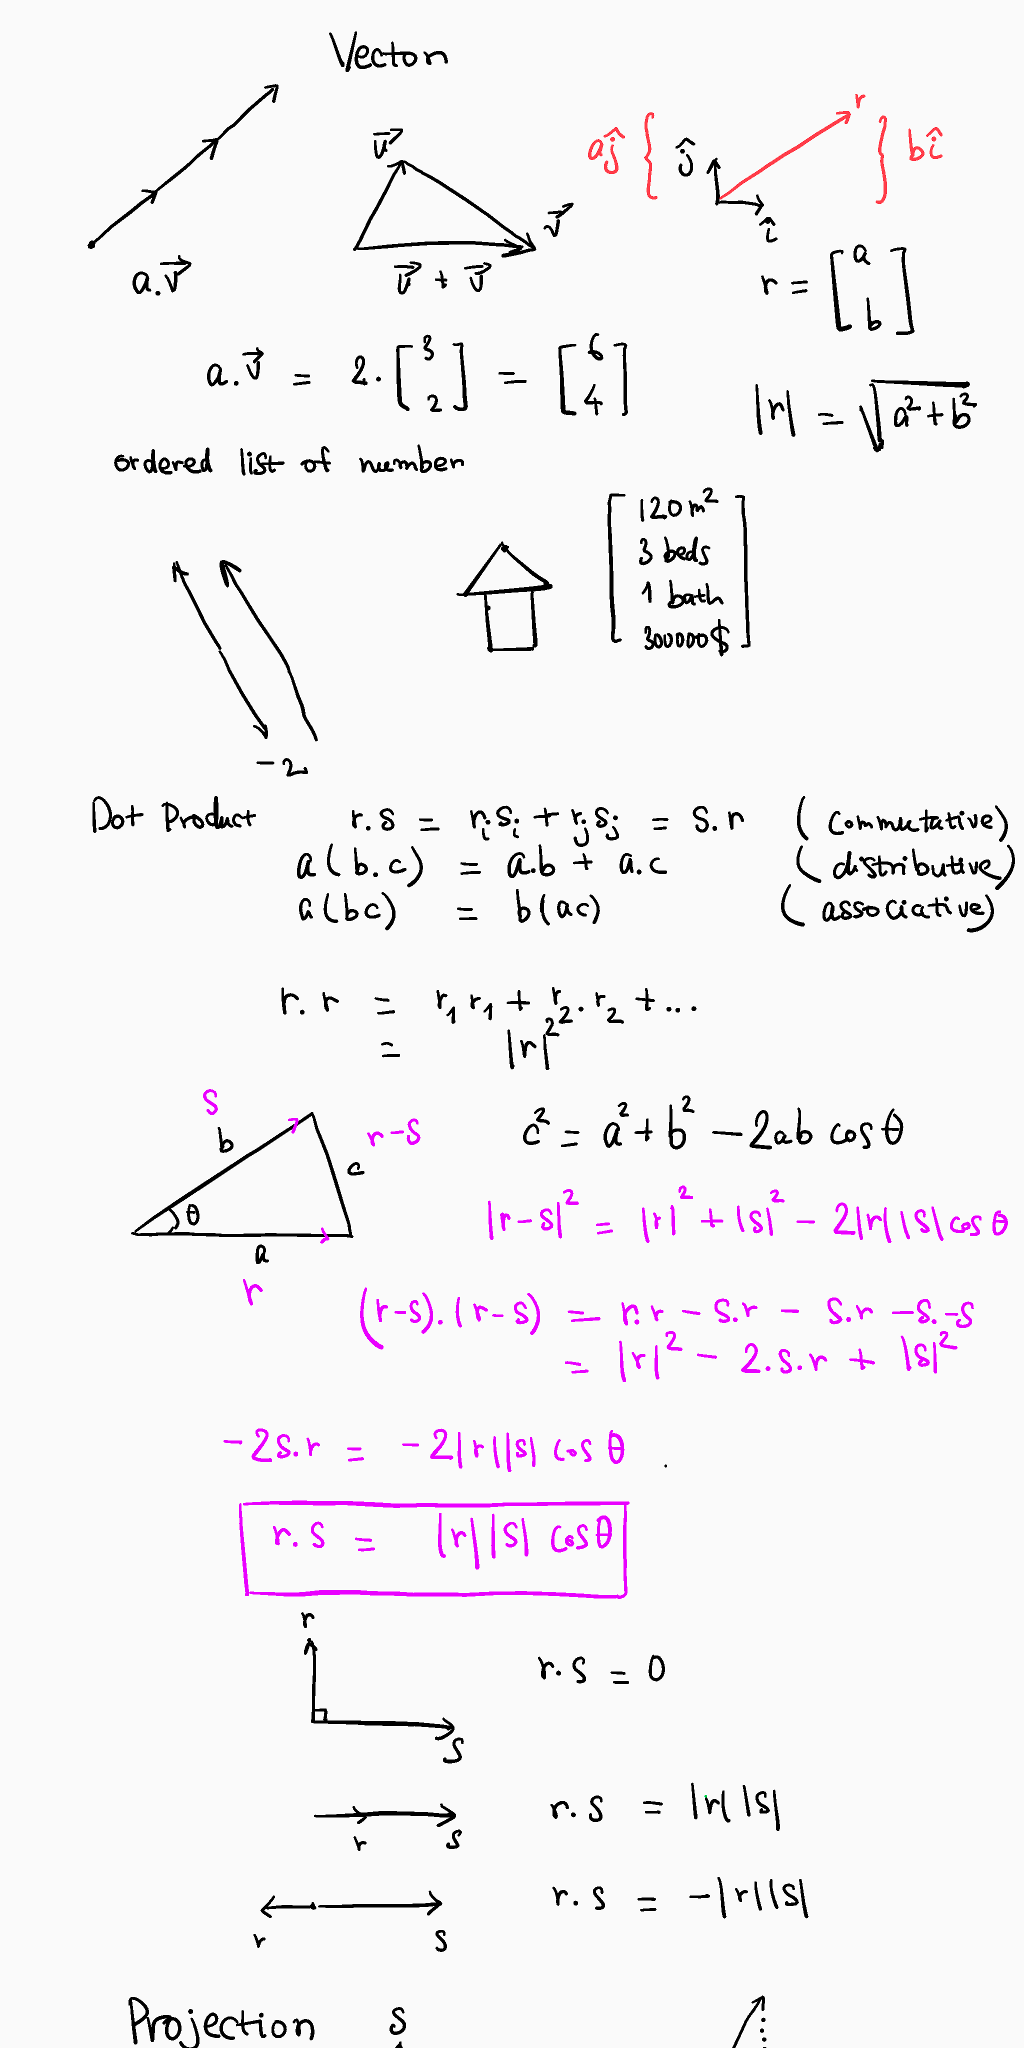 Vector
a.v⃗
u⃗
v⃗
v⃗ + v⃗
aĵ { ĵ
î
r
} bî
r = [a b]
a.v⃗ = 2.[3 2] = [6 4]
|r| = √a²+b²
ordered list of number
120 m²
3 beds
1 bath
300000$
-2
Dot Product r.s = rᵢsᵢ + rⱼsⱼ = s.r (commutative)
a(b.c) = a.b + a.c (distributive)
a(bc) = b(ac) (associative)
r.r = r₁r₁ + r₂.r₂ + ...
= |r|²
s
b
r-s
c
θ
a
r
c² = a² + b² - 2ab cos θ
|r-s|² = |r|² + |s|² - 2|r||s| cos θ
(r-s).(r-s) = r.r - s.r - s.r -s.-s
= |r|² - 2.s.r + |s|²
-2s.r = -2|r||s| cos θ
r.s = |r||s| cosθ
r
s
r.s = 0
r s
r.s = |r||s|
r s
r.s = -|r||s|
Projection
s